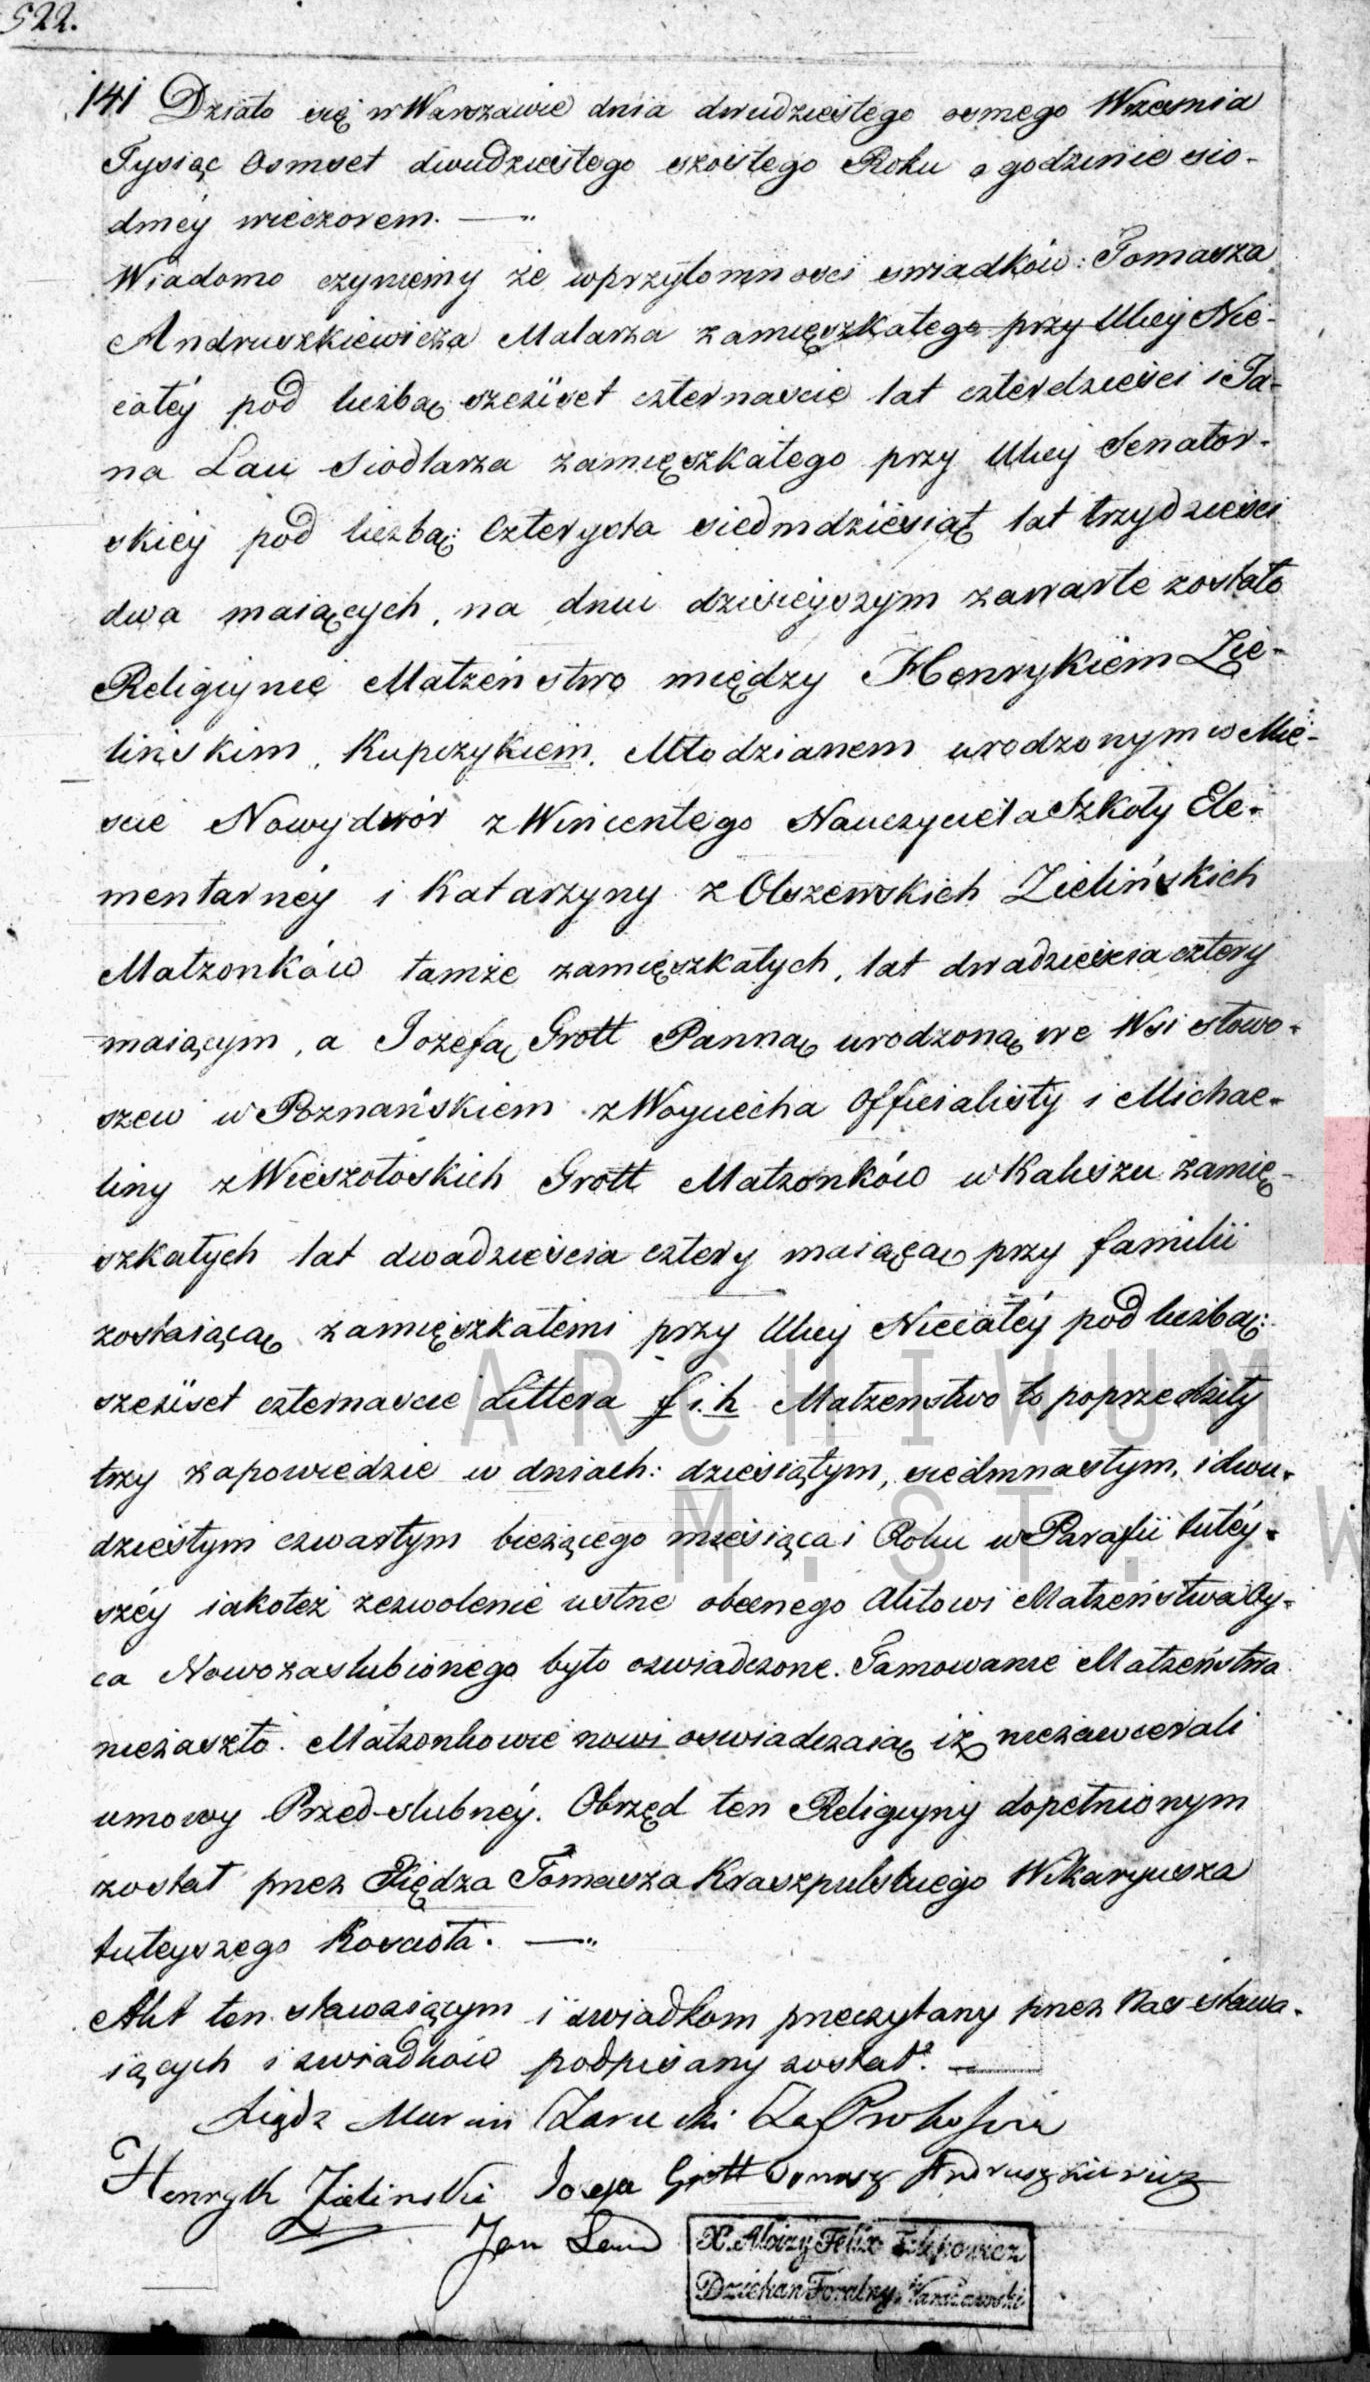 522.
141 Działo się w Warszawie dnia dwudziestego osmego Wrzesnia
Tysiąc Osmset dwudziestego szostego Roku o godzinie sio-
dméy wieczorem.
Wiadomo czyniemy że w przytomnosci swiadków: Tomasza
Andruszkiewicza Malarza zamięszkałego przy Ulicy Nie-
całéy pod liczbą sześćset czternascie lat czterdziesci i Ja-
na Lau Siodlarza zamięszkałego przy Ulicy Senator-
skiéy pod liczbą: Czterysta siedmdziesiąt lat trzydziesci
dwa maiących, na dniu dzisieyszym zawarte zostało
Religiynie Małżeństwo między Henrykiem Zie-
lińskim, Kupczykiem, Młodzianem urodzonym w Mie-
scie Nowydwór z Wincentego Nauczyciela Szkoły Ele-
mentarnéy i Katarzyny z Olszewskich Zielińskich
Małżonków tamże zamięszkałych, lat dwadziescia cztery
maiącym, a Jozefą Grott Panną urodzoną we Wsi Słowo-
szew w Poznańskiem z Woyciecha Officialisty i Michae-
liny z Wieszołoskich Grott Małżonków w Kaliszu zamię-
szkałych lat dwadziescia cztery maiącą przy familii
zostaiącą zamięszkałemi przy Ulicy Niecałéy pod liczbą:
sześćset czternascie Littera f. i. h Małżenstwo to poprzedziły
trzy zapowiedzie w dniach: dziesiątym, siedmnastym, i dwu-
dziestym czwartym bieżącego miesiąca i Roku w Parafii tutéy-
széy iakoteż zezwolenie ustne obecnego Aktowi Małżeństwa Oy-
ca Nowozaslubionego było oswiadczone. Tamowanie Małżeństwa
niezaszło. Małżonkowie nowi oswiadczaią iż niezawierali
umowy Przed-slubnéy. Obrzęd ten Religiyny dopełnionym
został przez Xiędza Tomasza Kraszpulskiego Wikaryusza
tuteyszego Koscioła.
Akt ten stawaiącym i swiadkom przeczytany przez Nas stawa-
iących i swiadków podpisany został.
Xiądz Marcin Zarucki Za Proboszcza
Henryk Zieliński Jozefa Grott Tomasz Andruszkiewicz
Jan Lau
X. Aloizy Felix
Dziekan Foralny Warszawski
ARCHIWUM
M. ST. W